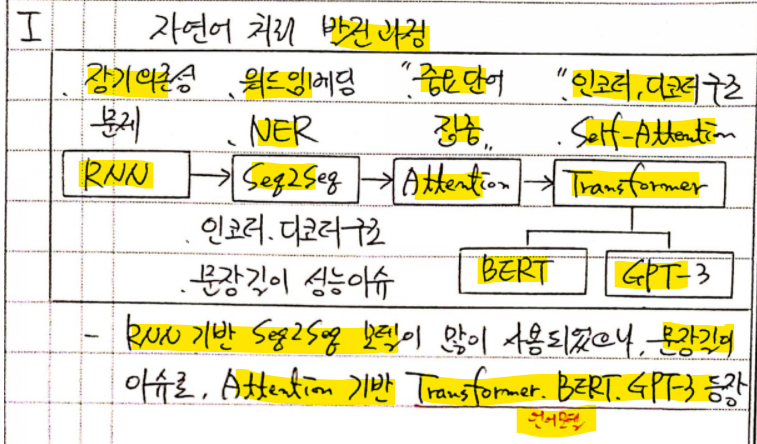 I 자연어 처리 발전과정
. 장기의존성 . 워드임베딩 "중요단어 "인코더, 디코더 구조
문제 . NER 집중" . Self-Attention
RNN → Seq2Seq → Attention → Transformer
. 인코더. 디코더 구조
BERT GPT-3
. 문장길이 성능이슈
- RNN 기반 Seq2Seq 모델이 많이 사용되었으나, 문장길이
이슈로, Attention 기반 Transformer. BERT. GPT-3 등장
언어모델